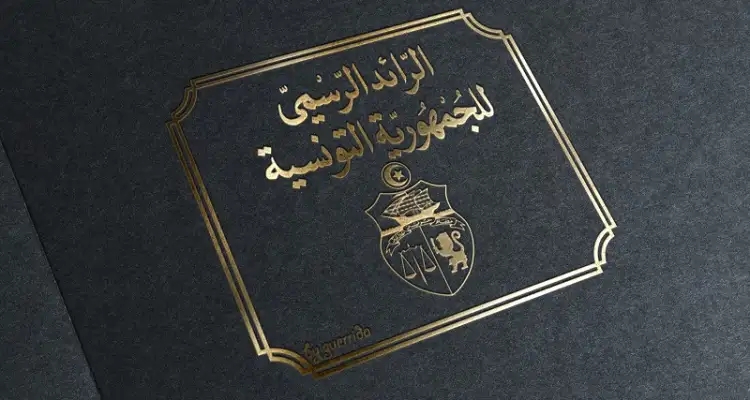 الرّائد الرّسْميّ
للجُمْهُوريّة التونسية
by guerrido